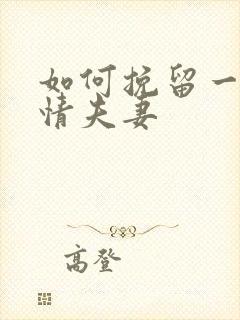 如何挽留一
情夫妻
高登